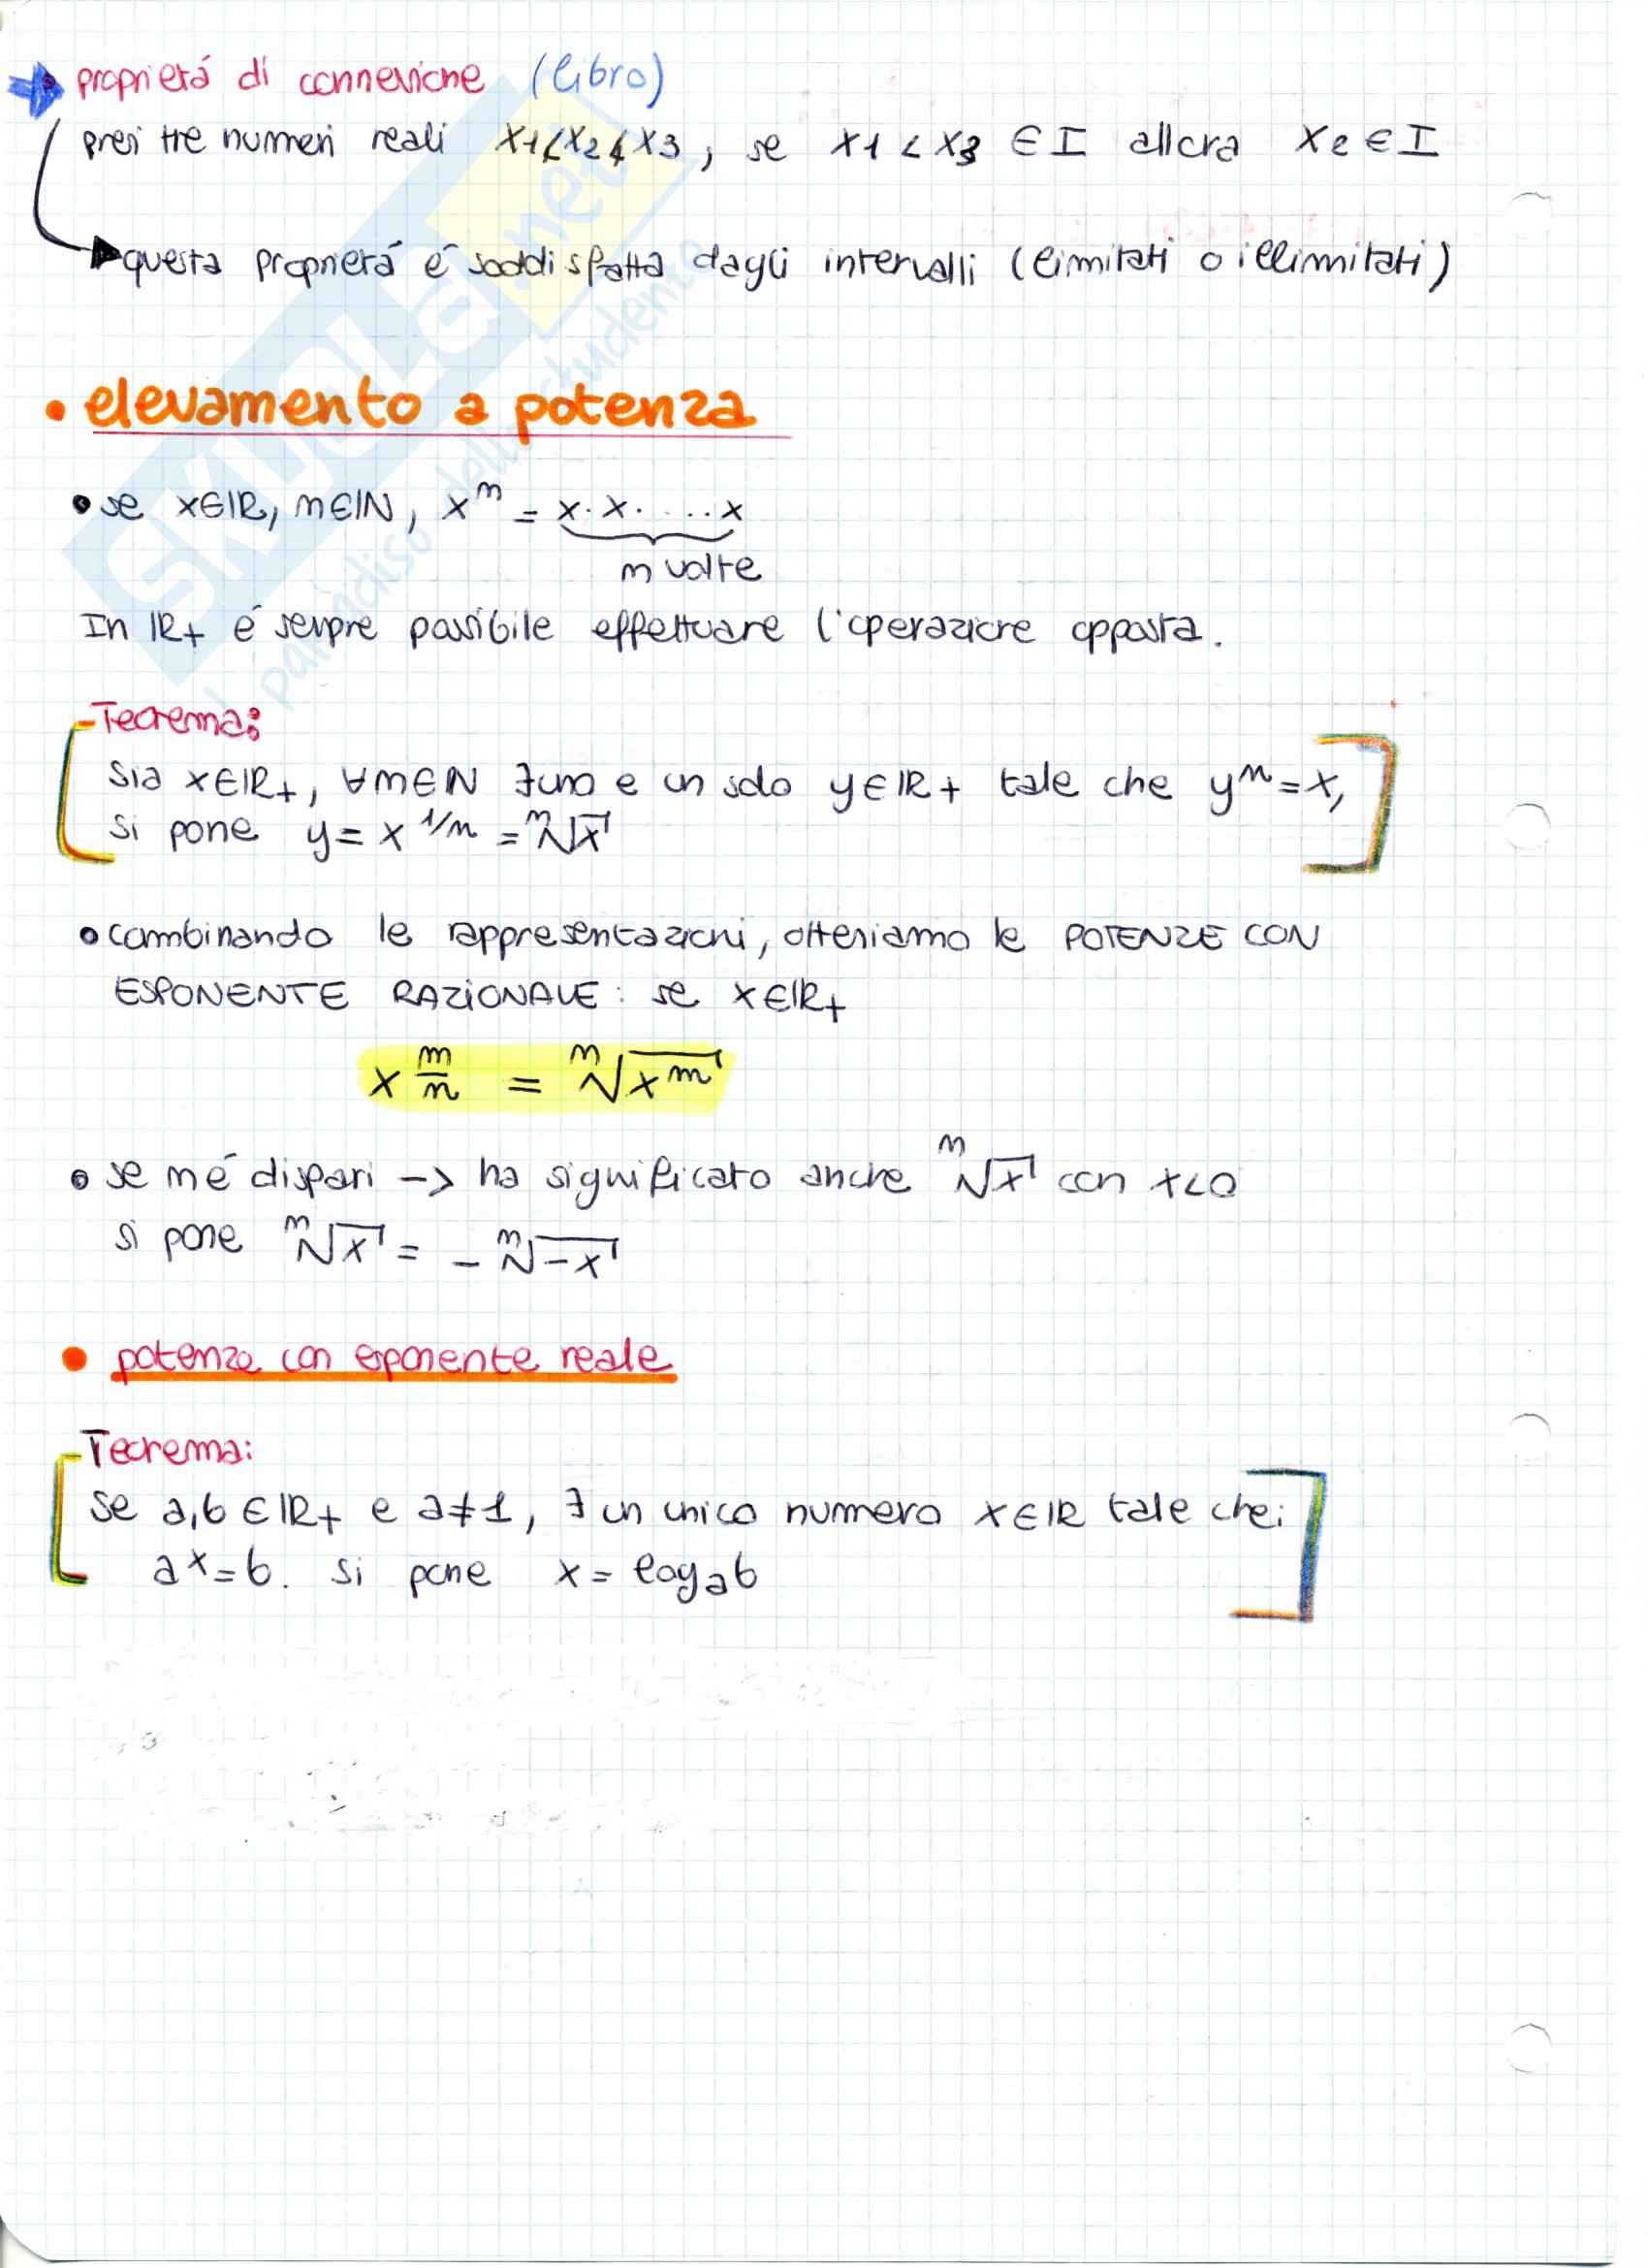 proprietá di connessione (libro)
presi tre numeri reali x1<x2<x3, se x1<x3 ∈ I allora x2 ∈ I
questa proprietá é soddisfatta dagli intervalli (limitati o illimitati)
• elevamento a potenza
• se x∈ℝ, n∈ℕ, xⁿ = x·x·...·x
n volte
In ℝ+ é sempre possibile effettuare l'operazione opposta.
-Teorema:
Sia x∈ℝ+, ∀n∈N ∃ uno e un solo y∈ℝ+ tale che yⁿ=x,
si pone y = x^1/n = ⁿ√x
• combinando le rappresentazioni, otteniamo le POTENZE CON
ESPONENTE RAZIONALE: se x∈ℝ+
x^m/n = ⁿ√x^m
• se n é dispari -> ha significato anche ⁿ√x con x<0
si pone ⁿ√x = - ⁿ√-x
• potenze con esponente reale
-Teorema:
se a,b ∈ℝ+ e a≠1, ∃ un unico numero x∈ℝ tale che:
a^x=b. si pone x = log_a b
SKUOLA.net
il paradiso dello studente